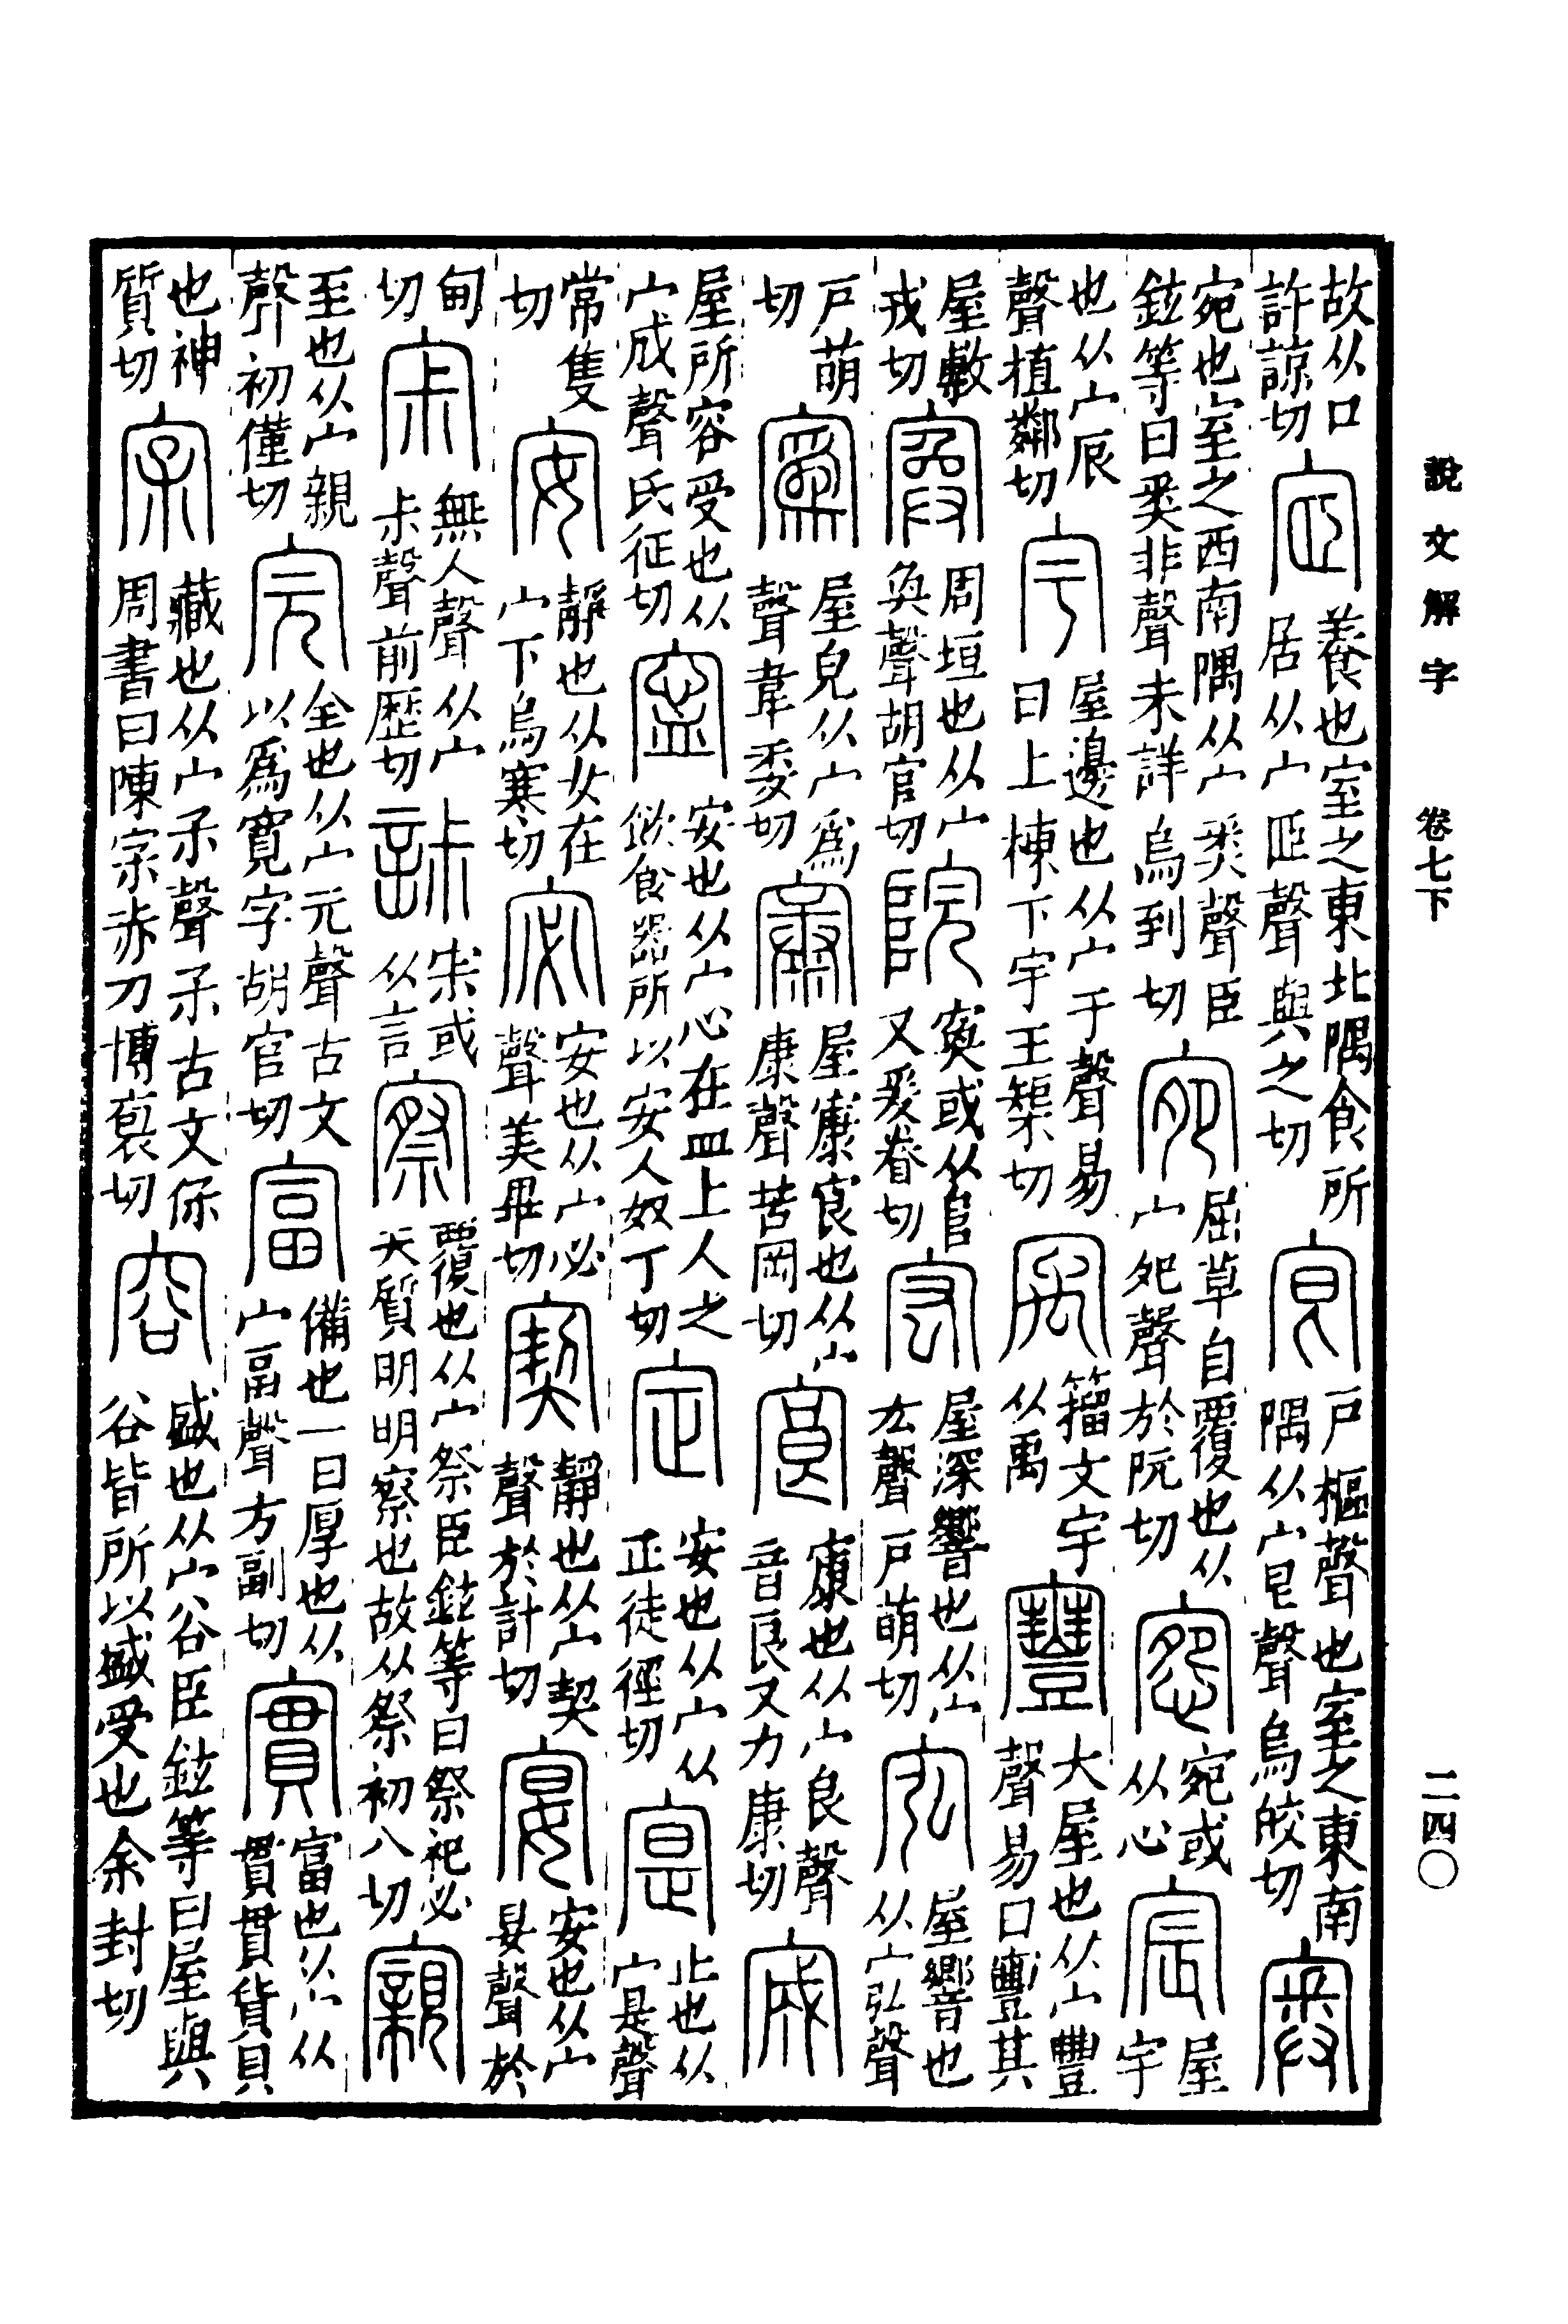 故从口許諒切宧養也室之東北隅食所居从宀𦣞聲與之切㝔戶樞聲也室之東南隅从宀㫐聲烏皎切奧
宛也室之西南隅从宀𢍏聲臣鉉等曰𢍏非聲未詳烏到切宛屈草自覆也从宀夗聲於阮切惌宛或从心宸屋宇
也从宀辰聲植鄰切宇屋邊也从宀于聲易曰上棟下宇王榘切㝢籒文宇从禹寷大屋也从宀豐聲易曰寷其
屋敷戎切寏周垣也从宀奐聲胡官切院寏或从𨸏又爰眷切宏屋深響也从宀厷聲戶萌切宖屋響也从宀弘聲
戶萌切寪屋皃从宀爲聲韋委切㝩屋㝩㝗也从宀康聲苦岡切㝗㝩也从宀良聲音良又力康切宬
屋所容受也从宀成聲氏征切寍安也从宀心在皿上人之飲食器所以安人奴丁切定安也从宀从正徒徑切寔止也从宀是聲
常隻切安靜也从女在宀下烏寒切宓安也从宀必聲美畢切㝣靜也从宀契聲於計切宴安也从宀妟聲於
甸切宋無人聲从宀尗聲前歷切𧧌宋或从言察覆也从宀祭臣鉉等曰祭祀必天質明明察也故从祭初八切寴
至也从宀親聲初僅切完全也从宀元聲古文以爲寬字胡官切富備也一曰厚也从宀畐聲方副切實富也从宀从貫貫貨貝
也神質切宲藏也从宀𣎼聲𣎼古文保周書曰陳宲赤刀博褒切容盛也从宀谷臣鉉等曰屋與谷皆所以盛受也余封切
說文解字 卷七下 二四〇